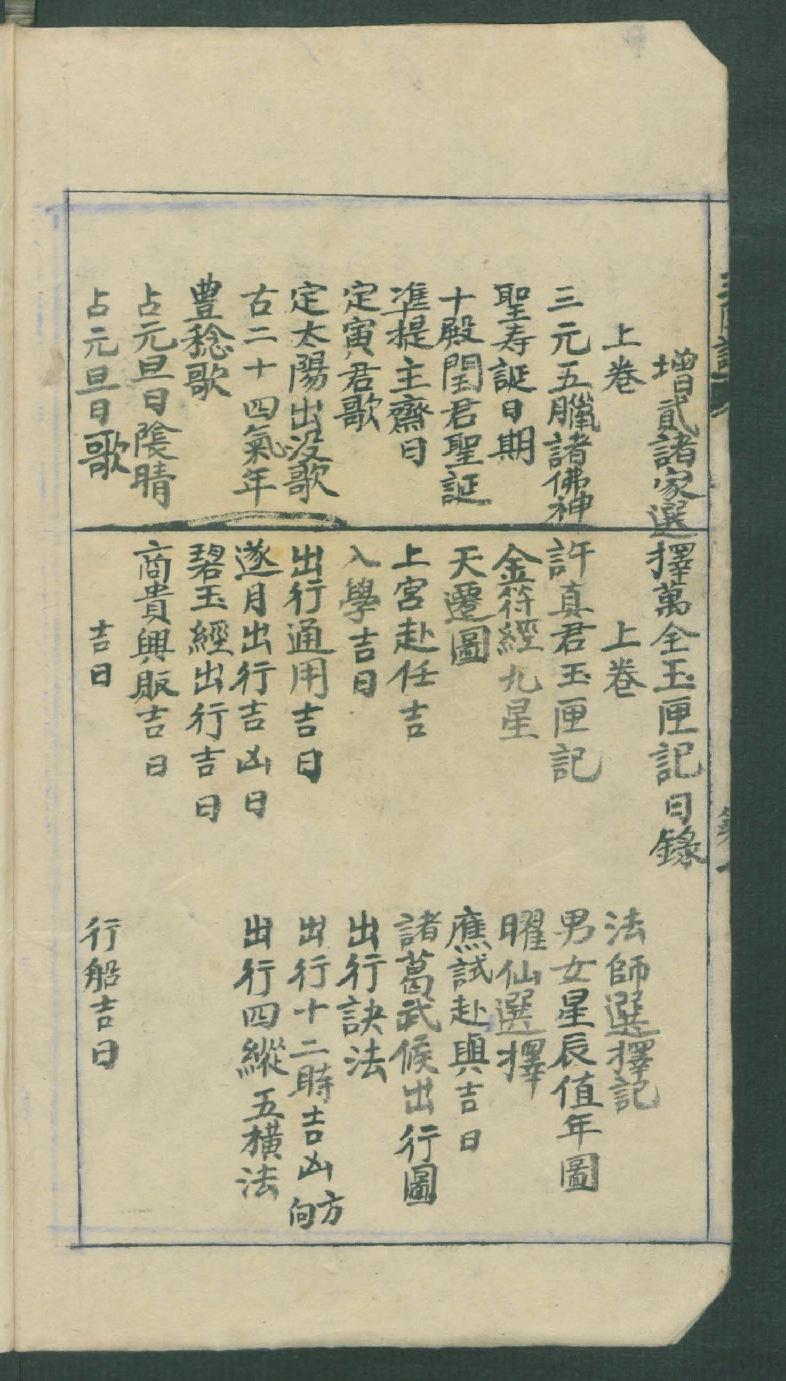 增貳諸家選擇萬全玉匣記目錄
上卷
上卷
法師選擇記
三元五臘諸佛神
許真君玉匣記
男女星辰值年圖
聖寿誕日期
金符經九星
曜仙選擇
十殿閏君聖誕
天遷圖
應試赴舉吉日
準提主齋日
上宮赴任吉
諸葛武候出行圖
定寅君歌
入學吉日
出行訣法
定太陽出没歌
出行通用吉日
出行十二時吉凶方向
古二十四氣年
遂月出行吉凶日
出行四縱五橫法
豊稔歌
碧玉經出行吉日
占元旦日陰晴
商貴興販吉日
占元旦日歌
吉日
行船吉日